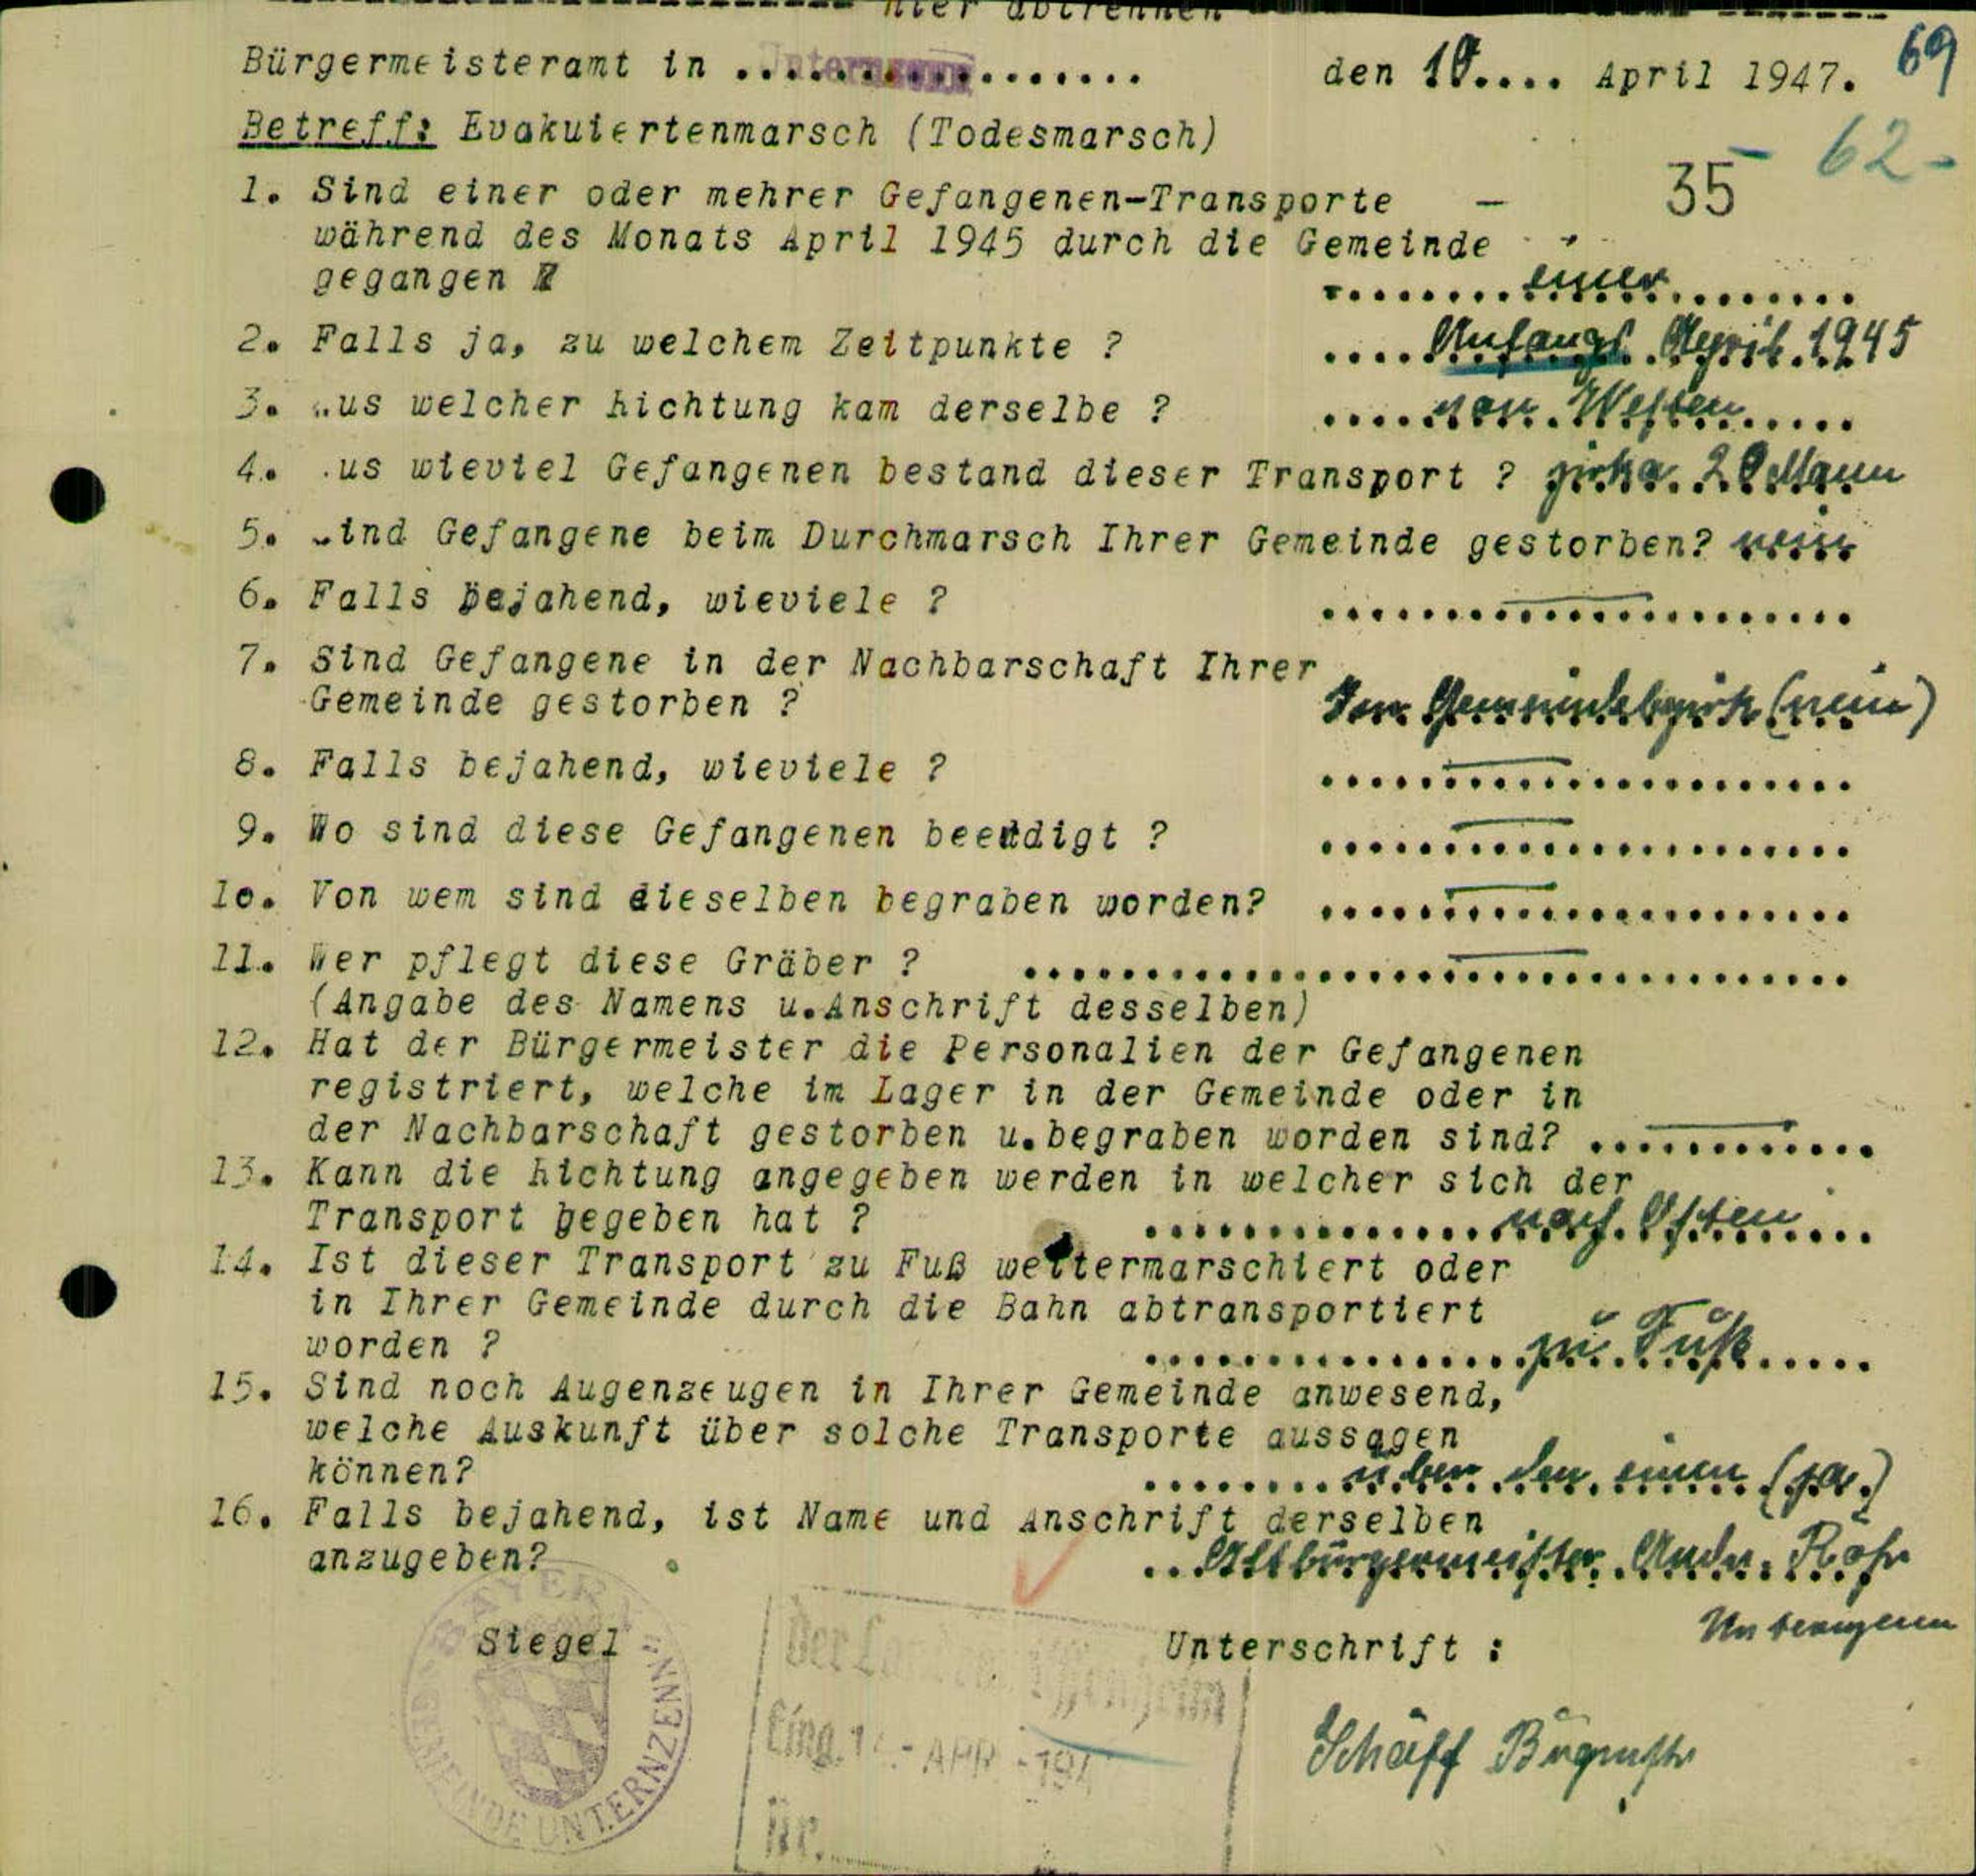 hier abtrennen
Bürgermeisteramt in .................. den 10.... April 1947. 69
Betreff: Evakuiertenmarsch (Todesmarsch)
35 62-
1. Sind einer oder mehrer Gefangenen-Transporte
während des Monats April 1945 durch die Gemeinde
gegangen
einer
2. Falls ja, zu welchem Zeitpunkte ? Anfangs April 1945
3. us welcher Richtung kam derselbe ? von Westen
4. us wieviel Gefangenen bestand dieser Transport ? zirka 20 Mann
5. ind Gefangene beim Durchmarsch Ihrer Gemeinde gestorben? nein
6. Falls bejahend, wieviele ? ——
7. Sind Gefangene in der Nachbarschaft Ihrer
Gemeinde gestorben ? Im Gemeindebezirk (nein)
8. Falls bejahend, wieviele ? ——
9. Wo sind diese Gefangenen beerdigt ? ——
10. Von wem sind dieselben begraben worden? ——
11. Wer pflegt diese Gräber ? ——
(Angabe des Namens u.Anschrift desselben)
12. Hat der Bürgermeister die Personalien der Gefangenen
registriert, welche im Lager in der Gemeinde oder in
der Nachbarschaft gestorben u.begraben worden sind? ——
13. Kann die Richtung angegeben werden in welcher sich der
Transport begeben hat ? nach Osten
14. Ist dieser Transport zu Fuß weitermarschiert oder
in Ihrer Gemeinde durch die Bahn abtransportiert
worden ? zu Fuß
15. Sind noch Augenzeugen in Ihrer Gemeinde anwesend,
welche Auskunft über solche Transporte aussagen
können? über den einen (ja.)
16. Falls bejahend, ist Name und Anschrift derselben
anzugeben? Altbürgermeister Andr. Röhr
Unternzenn
Siegel
Unterschrift :
BAYERN
GEMEINDE UNTERNZENN
Der
Eing. APR
Nr.
Schäff Bürgmstr